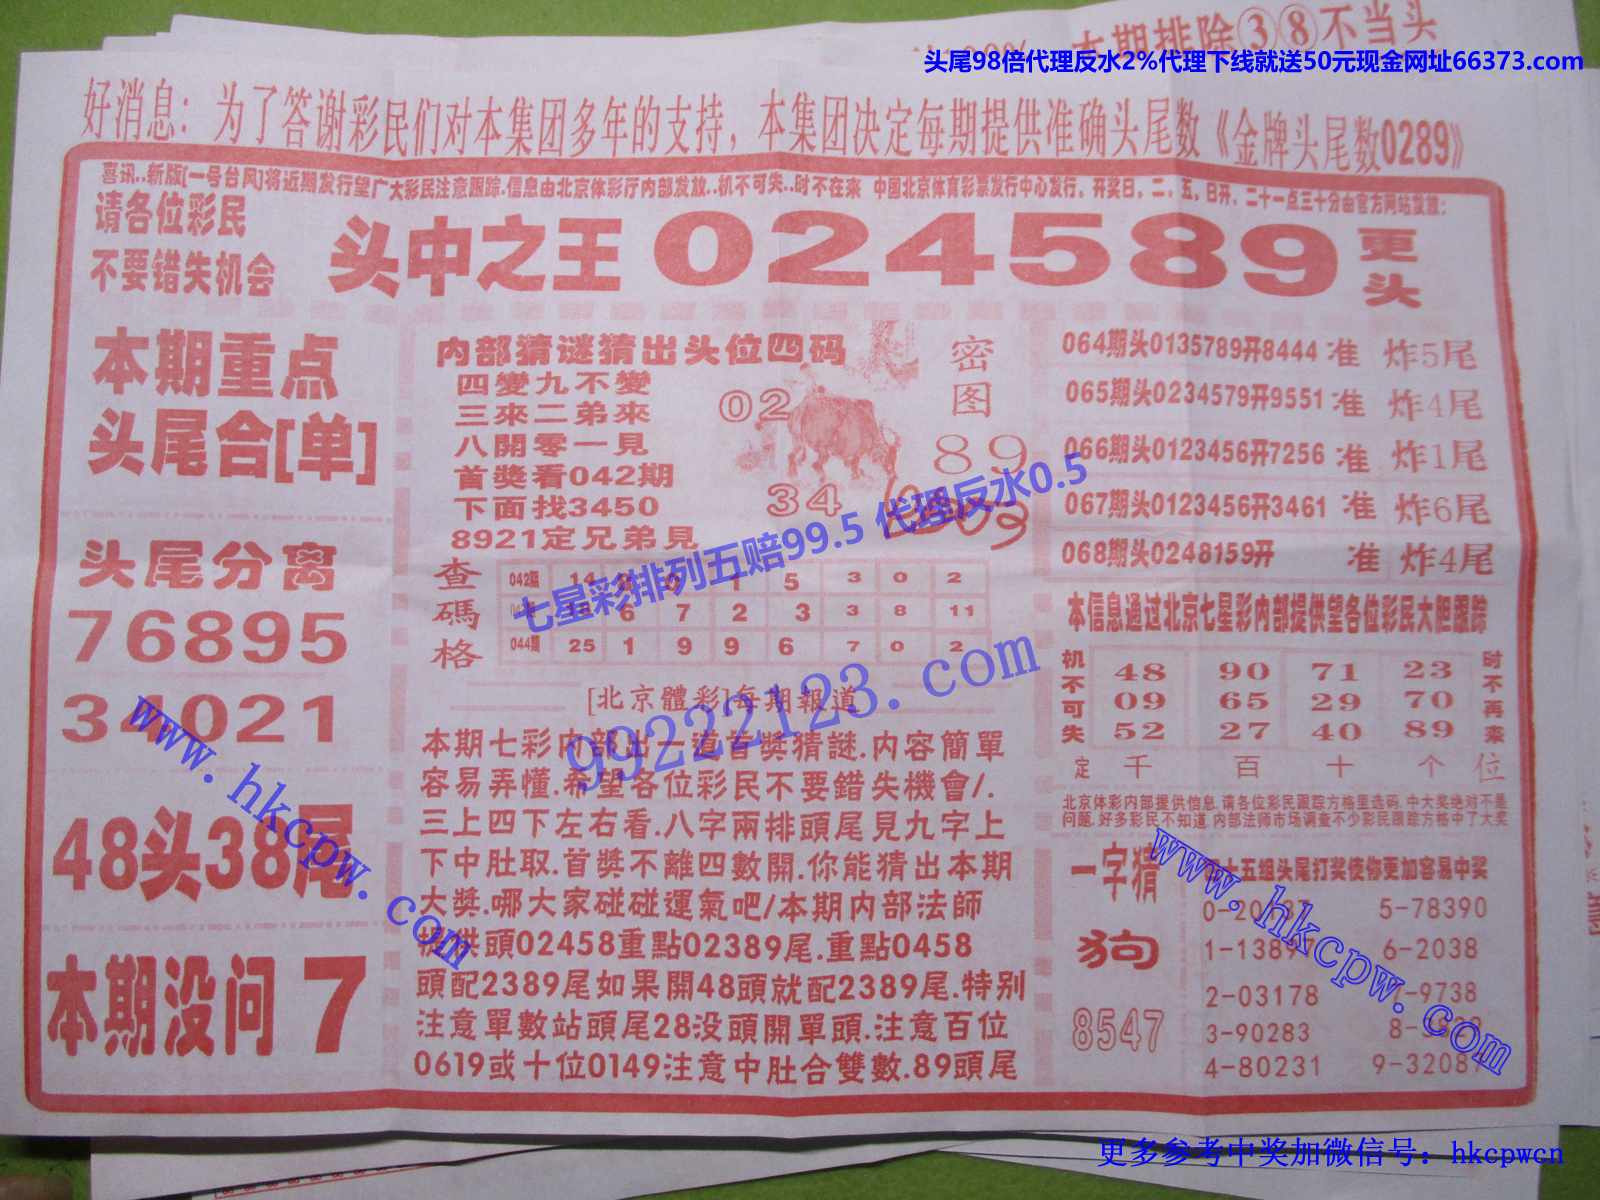 本期排除③⑧不当头
头尾98倍代理反水2%代理下线就送50元现金网址66373.com
好消息：为了答谢彩民们对本集团多年的支持，本集团决定每期提供准确头尾数《金牌头尾数0289》
喜讯..新版[一号台风]将近期发行望广大彩民注意跟踪.信息由北京体彩厅内部发放..机不可失..时不在来 中国北京体育彩票发行中心发行，开奖日，二，五，日开，二十一点三十分由官方网站发放：
请各位彩民
不要错失机会
头中之王024589
更头
本期重点
头尾合[单]
头尾分离
76895
34021
48头38尾
本期没问7
内部猜谜猜出头位四码
四變九不變
三來二弟來
八開零一見
首獎看042期
下面找3450
8921定兄弟見
02
34
89
密图
七星彩排列五赔99.5 代理反水0.5
查碼格
042期 14 1 5 3 0 2
6 7 2 3 3 8 11
044期 25 1 9 9 6 7 0 2
[北京體彩]每期報道
本期七彩内部出一道首獎猜謎.内容簡單
容易弄懂.希望各位彩民不要錯失機會/.
三上四下左右看.八字兩排頭尾見九字上
下中肚取.首獎不離四數開.你能猜出本期
大獎.哪大家碰碰運氣吧/本期内部法師
提供頭02458重點02389尾.重點0458
頭配2389尾如果開48頭就配2389尾.特别
注意單數站頭尾28没頭開單頭.注意百位
0619或十位0149注意中肚合雙數.89頭尾
99222123.com
064期头0135789开8444 准 炸5尾
065期头0234579开9551 准 炸4尾
066期头0123456开7256 准 炸1尾
067期头0123456开3461 准 炸6尾
068期头0248159开 准 炸4尾
本信息通过北京七星彩内部提供望各位彩民大胆跟踪
机不可失
48 90 71 23
09 65 29 70
52 27 40 89
时不再来
定 千 百 十 个 位
北京体彩内部提供信息.请各位彩民跟踪方格里选码.中大奖绝对不是
问题.好多彩民不知道.内部法师市场调查不少彩民跟踪方格中了大奖
一字猜
狗
8547
五组头尾打奖使你更加容易中奖
5-78390
6-2038
2-03178
-9738
3-90283
4-80231
9-32087
www.hkcpw.com
www.hkcpw.com
更多参考中奖加微信号：hkcpwcn